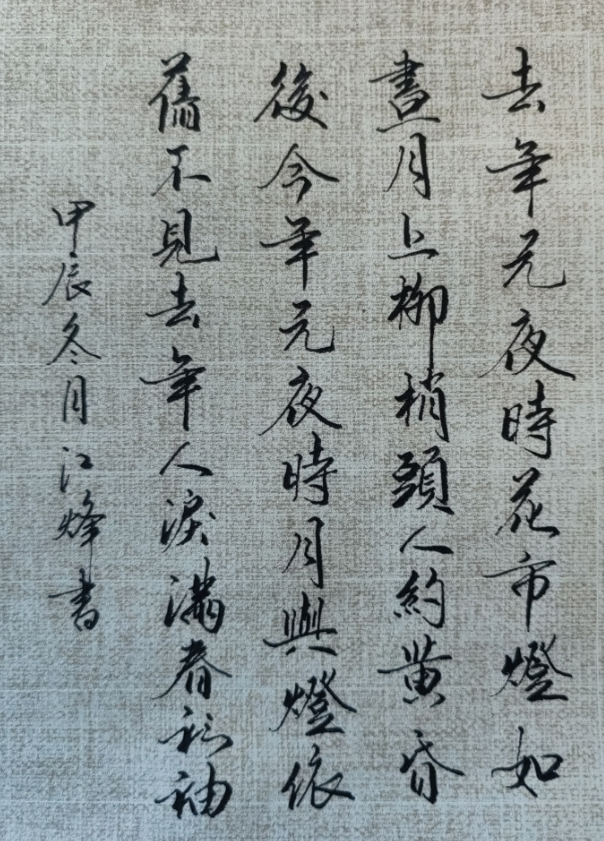 去年元夜時花市燈如
晝月上柳梢頭人約黄昏
後今年元夜時月與燈依
舊不見去年人淚滿春衫袖
甲辰冬月江烽書